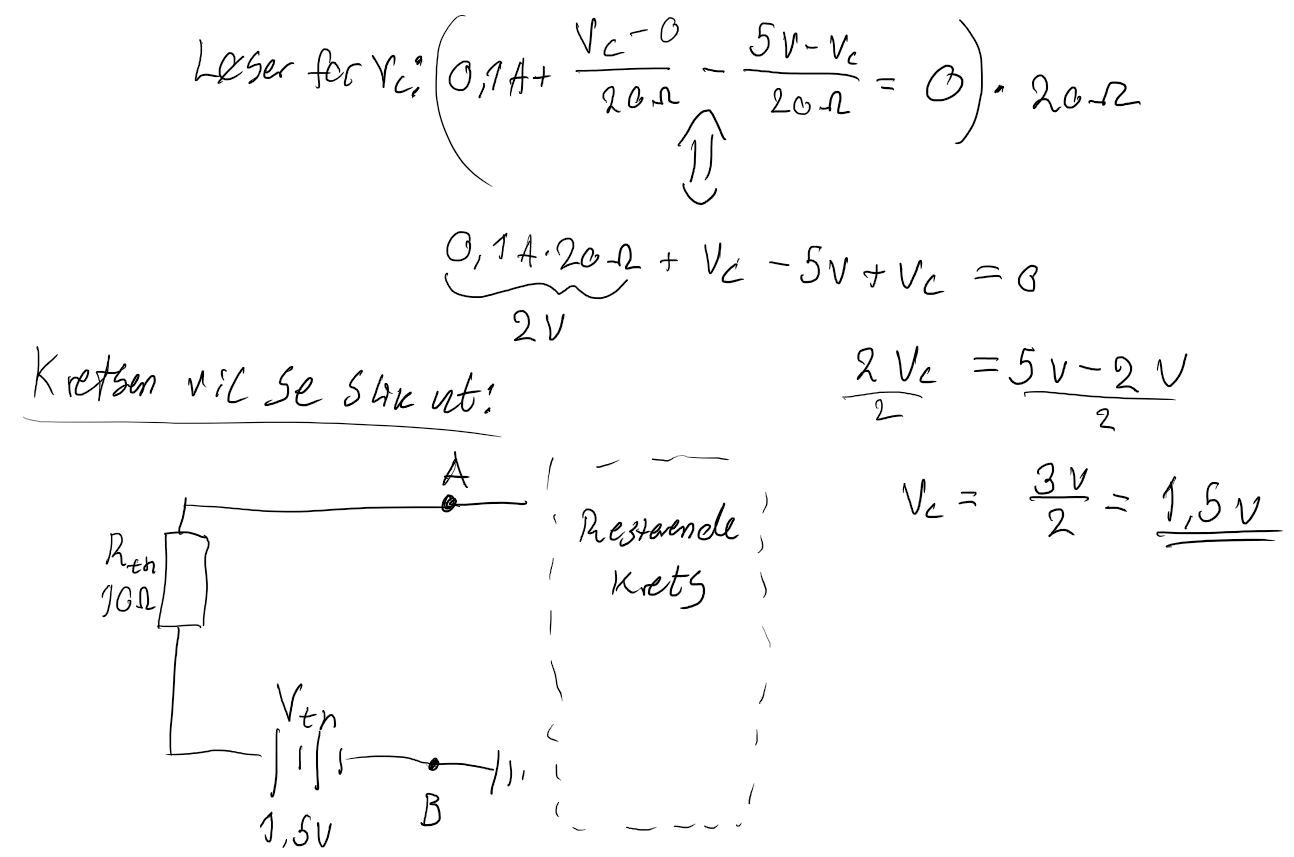 Løser for Vc: (0,1A + Vc-0/20Ω - 5V-Vc/20Ω = 0) · 20Ω
⇕
0,1A·20Ω + Vc - 5V + Vc = 0
2V
2Vc/2 = 5V-2V/2
Vc = 3V/2 = 1,5V
Kretsen vil se slik ut:
A
Rth
10Ω
Resterende
krets
Vth
1,5V
B